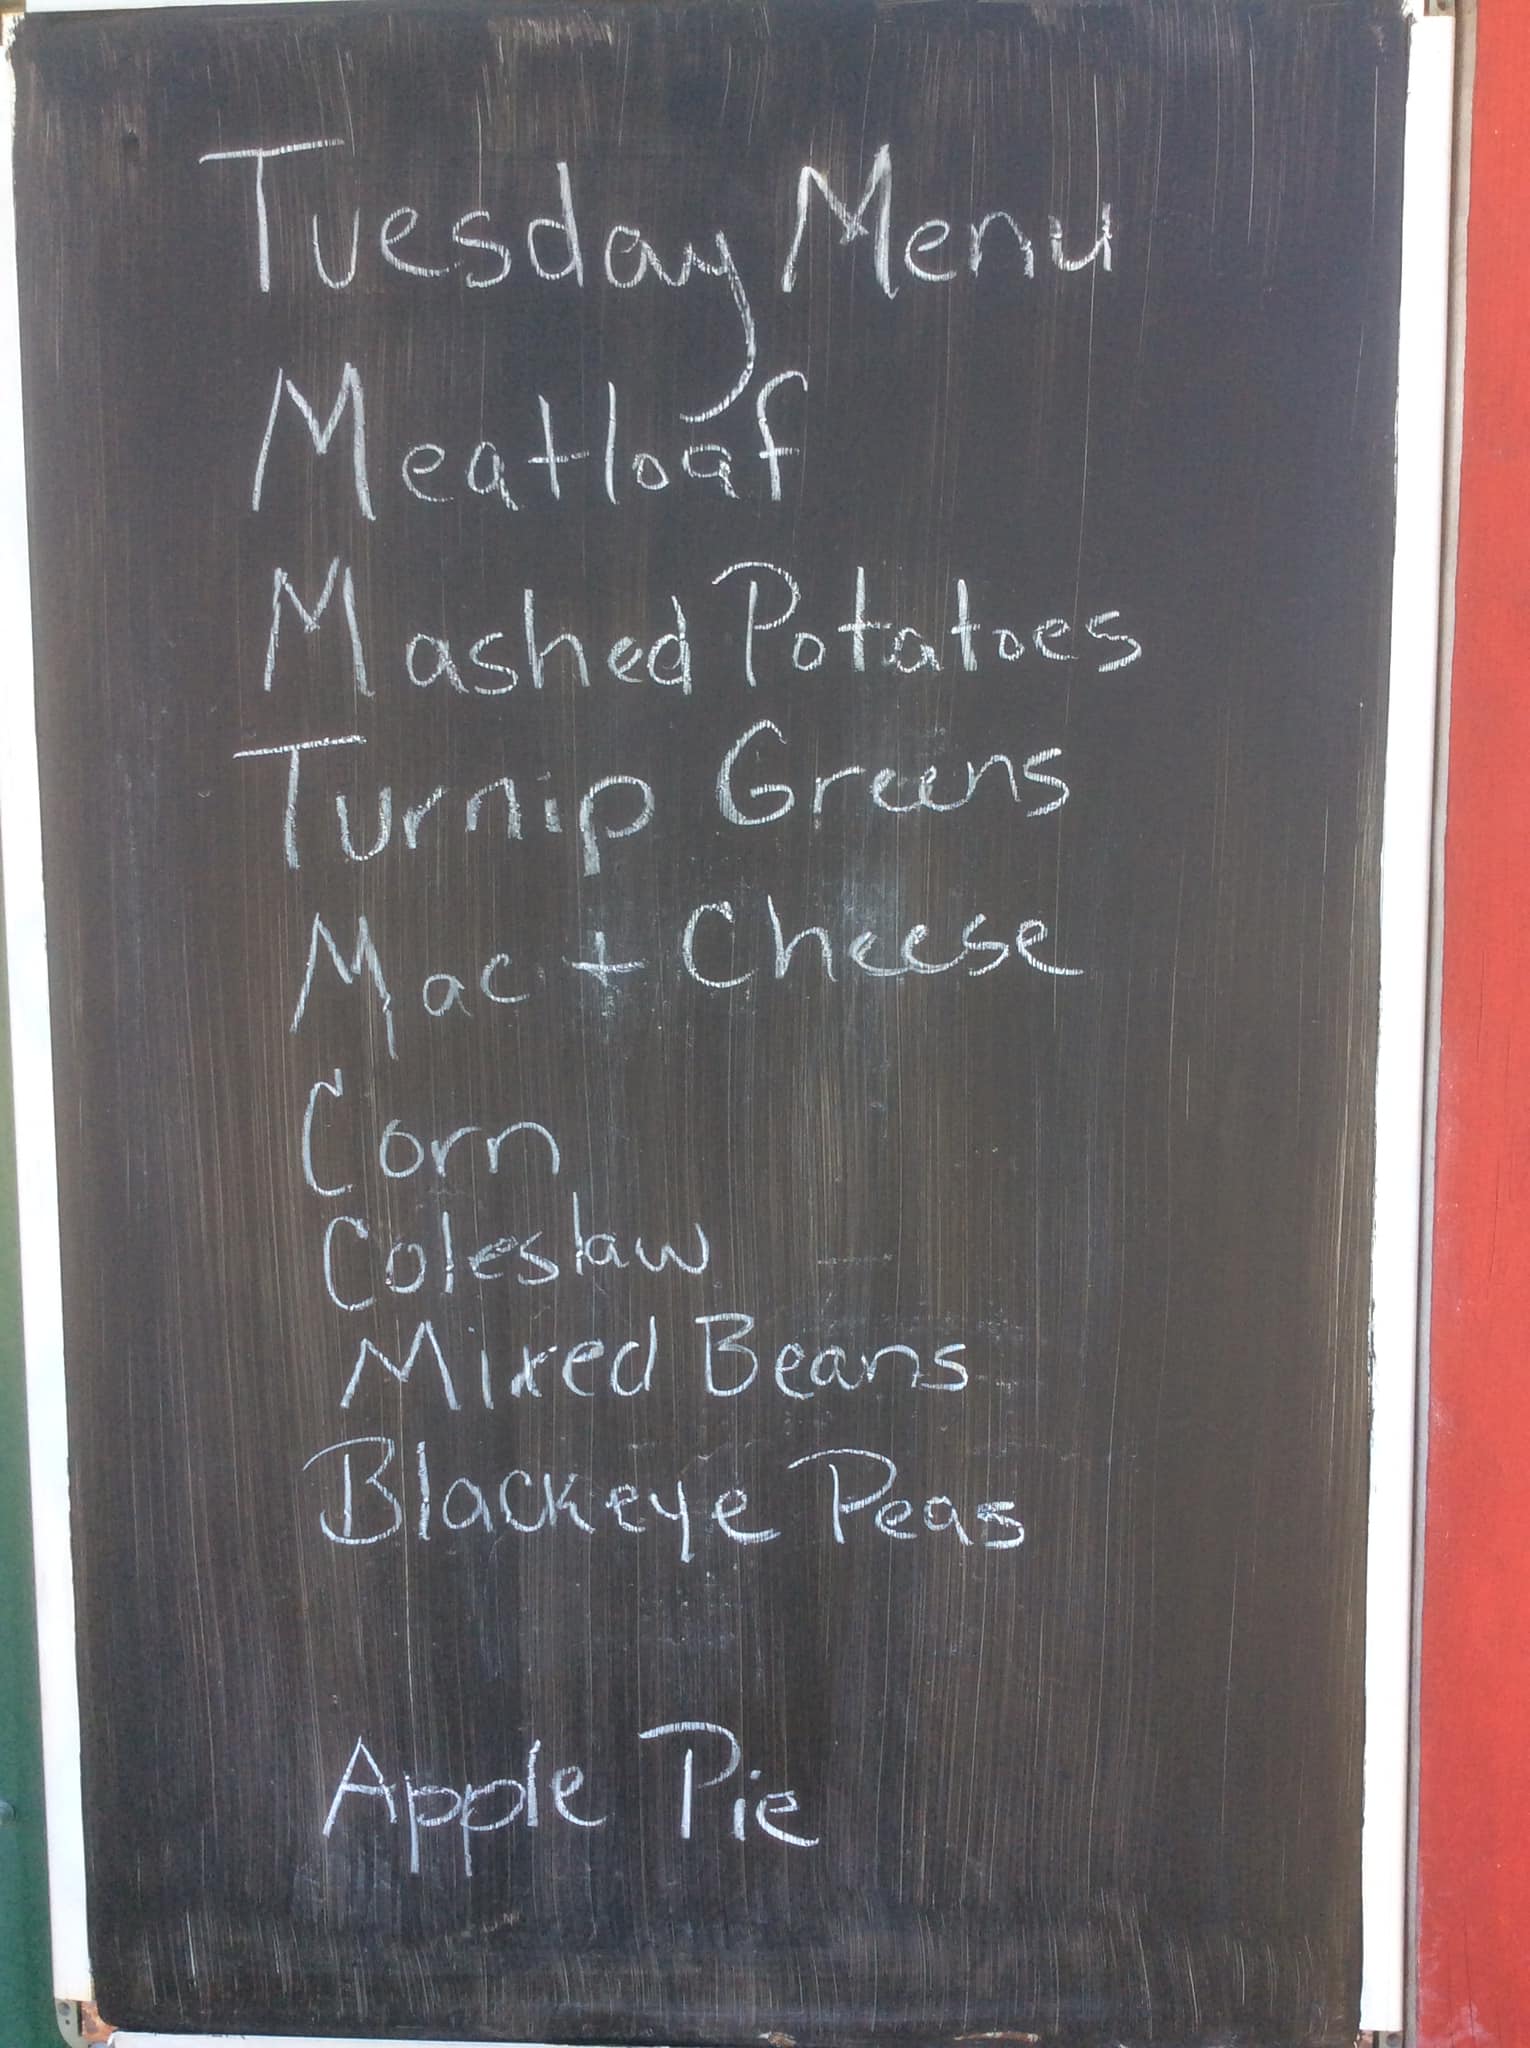 Tuesday Menu
Meatloaf
Mashed Potatoes
Turnip Greens
Mac + Cheese
Corn
Coleslaw
Mixed Beans
Blackeye Peas
Apple Pie